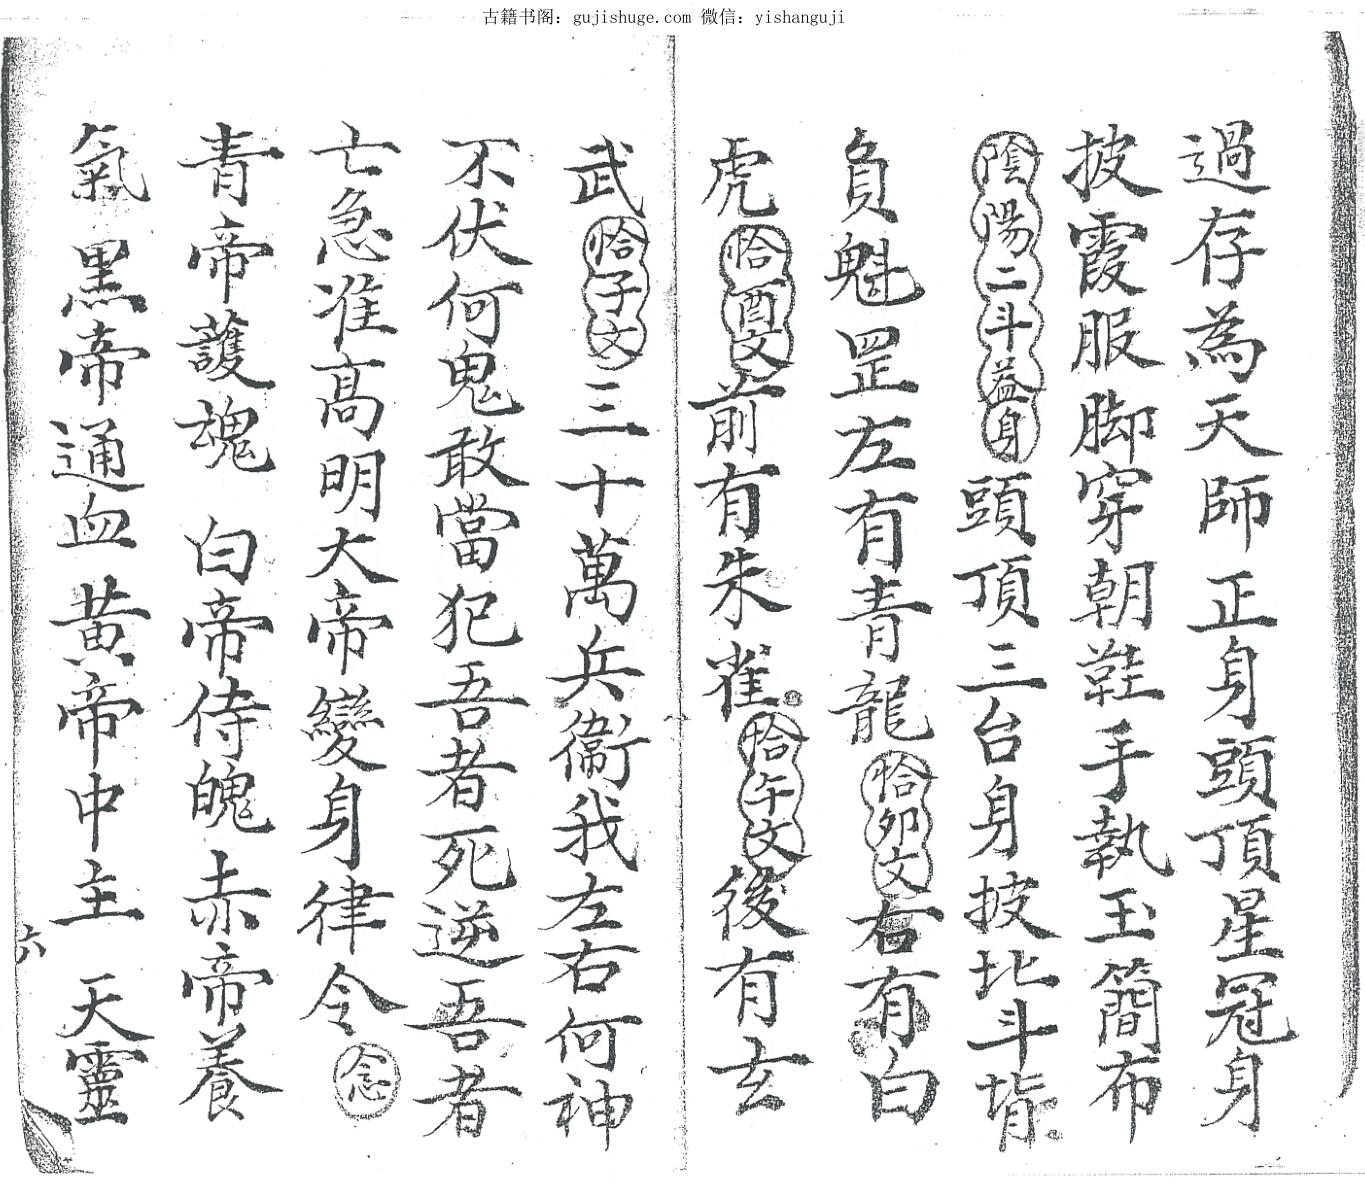 古籍书阁: gujishuge.com 微信: yishanguji
過存為天師正身頭頂星冠身
披霞服脚穿朝鞋手執玉簡布
陰陽二斗益身頭頂三台身披北斗背
負魁罡左有青龍恰卯文右有白
虎恰酉文前有朱雀恰午文後有玄
武恰子文三十萬兵衛我左右何神
不伏何鬼敢當犯吾者死逆吾者
亡急准髙明大帝變身律令念
青帝護魂 白帝侍魄赤帝養
氣 黒帝通血 黄帝中主 天靈
六